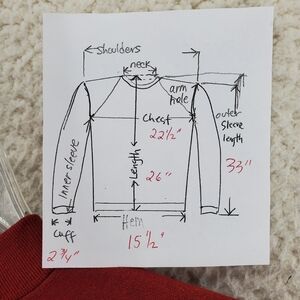 shoulders
neck
arm
hole
Chest
22½"
outer
sleeve
length
33"
inner sleeve
Length
26"
Cuff
2 ¾"
Hem
15 ½"